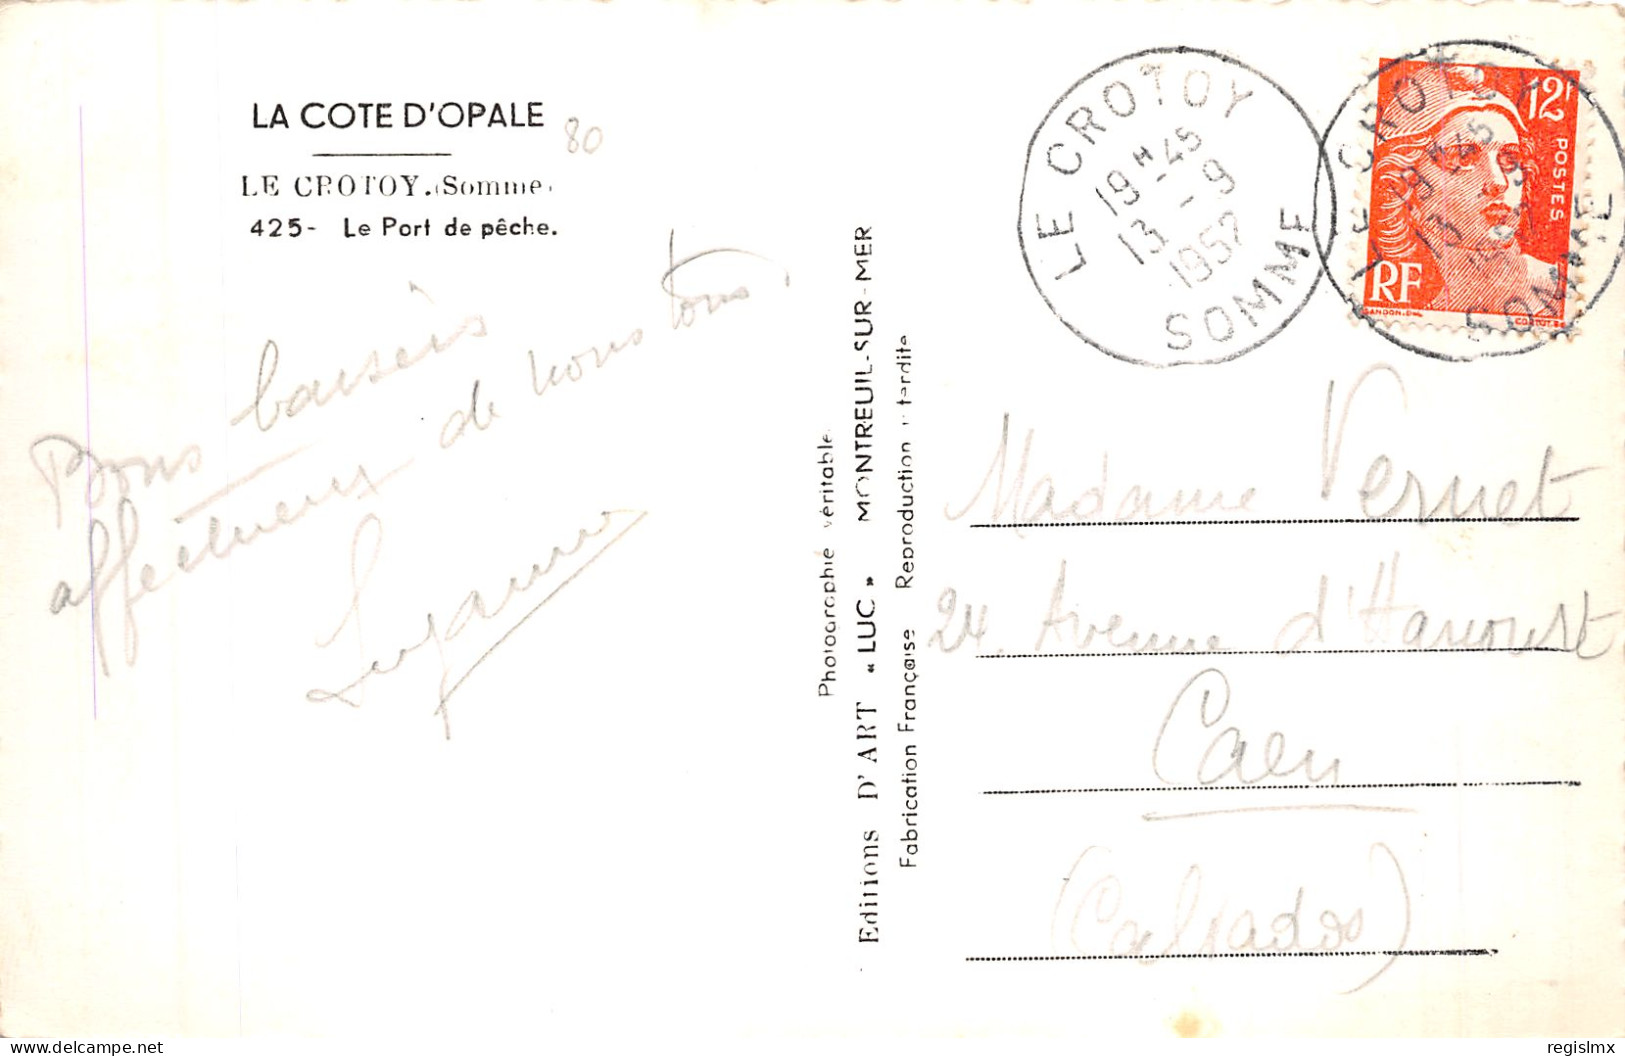 LA COTE D'OPALE
80
LE CROTOY.(Somme)
425- Le Port de pêche.
Bons baisers
affectueux de nous tous.
Suzanne
Photographie véritable
Editions D'ART « LUC » MONTREUIL-SUR-MER
Fabrication Française Reproduction interdite
LE CROTOY
19H45
13 - 9
1952
SOMME
12F
POSTES
RF
GANDON.DEL
CORTOT.SC
LE CROTOY
19H45
13 - 9
1952
SOMME
Madame Vernet
24. Avenue d'Harcourt
Caen
(Calvados)
delcampe.net
regislmx